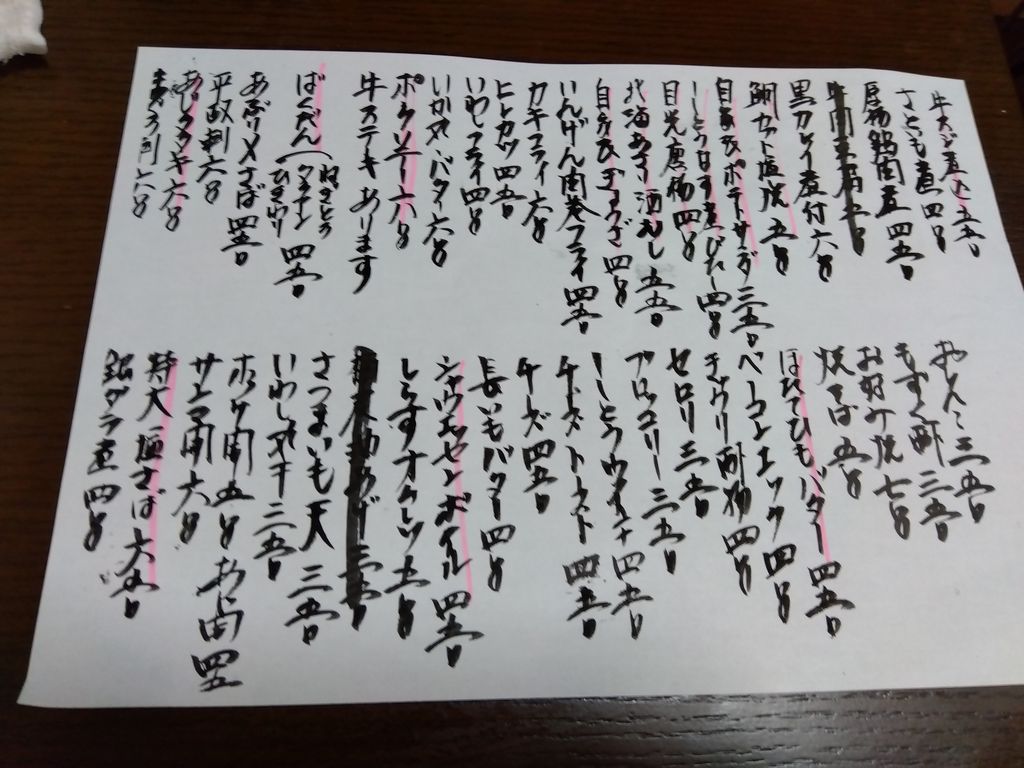 牛スジ煮込五五〇
さといも煮四〇〇
厚揚鶏肉煮四五〇
黒カレイ煮付六〇〇
鯛カット塩焼五〇〇
自家製ポテトサラダ三五〇
ししとうなす煮びたし四〇〇
目光唐揚四〇〇
北海あさり酒むし五五〇
自家製ぎょうざ四〇〇
いんげん肉巻フライ四五〇
カキフライ六〇〇
ヒレカツ四五〇
いわしフライ四〇〇
いか丸バター六〇〇
ポークソテー六〇〇
牛ステーキあります
ばくだん(ねぎとろ
ひきわり
あぶり〆さば四五〇
平政刺六〇〇
六〇〇
六〇〇
おしんこ三五〇
もずく酢三五〇
お好み焼七〇〇
焼そば五〇〇
ほたてひもバター四五〇
ベーコンエッグ四〇〇
きゅうり酢物四〇〇
セロリ三五〇
ブロッコリー三五〇
ししとうウインナ四五〇
チーズトースト四五〇
チーズ四五〇
長いもバター四〇〇
シャウエッセンボイル四五〇
しらすオムレツ五〇〇
さつまいも天三五〇
いわし丸干三五〇
ホッケ開五〇〇 あじ開四五
サンマ開六〇〇
特大塩さば六五〇
銀ダラ煮四〇〇